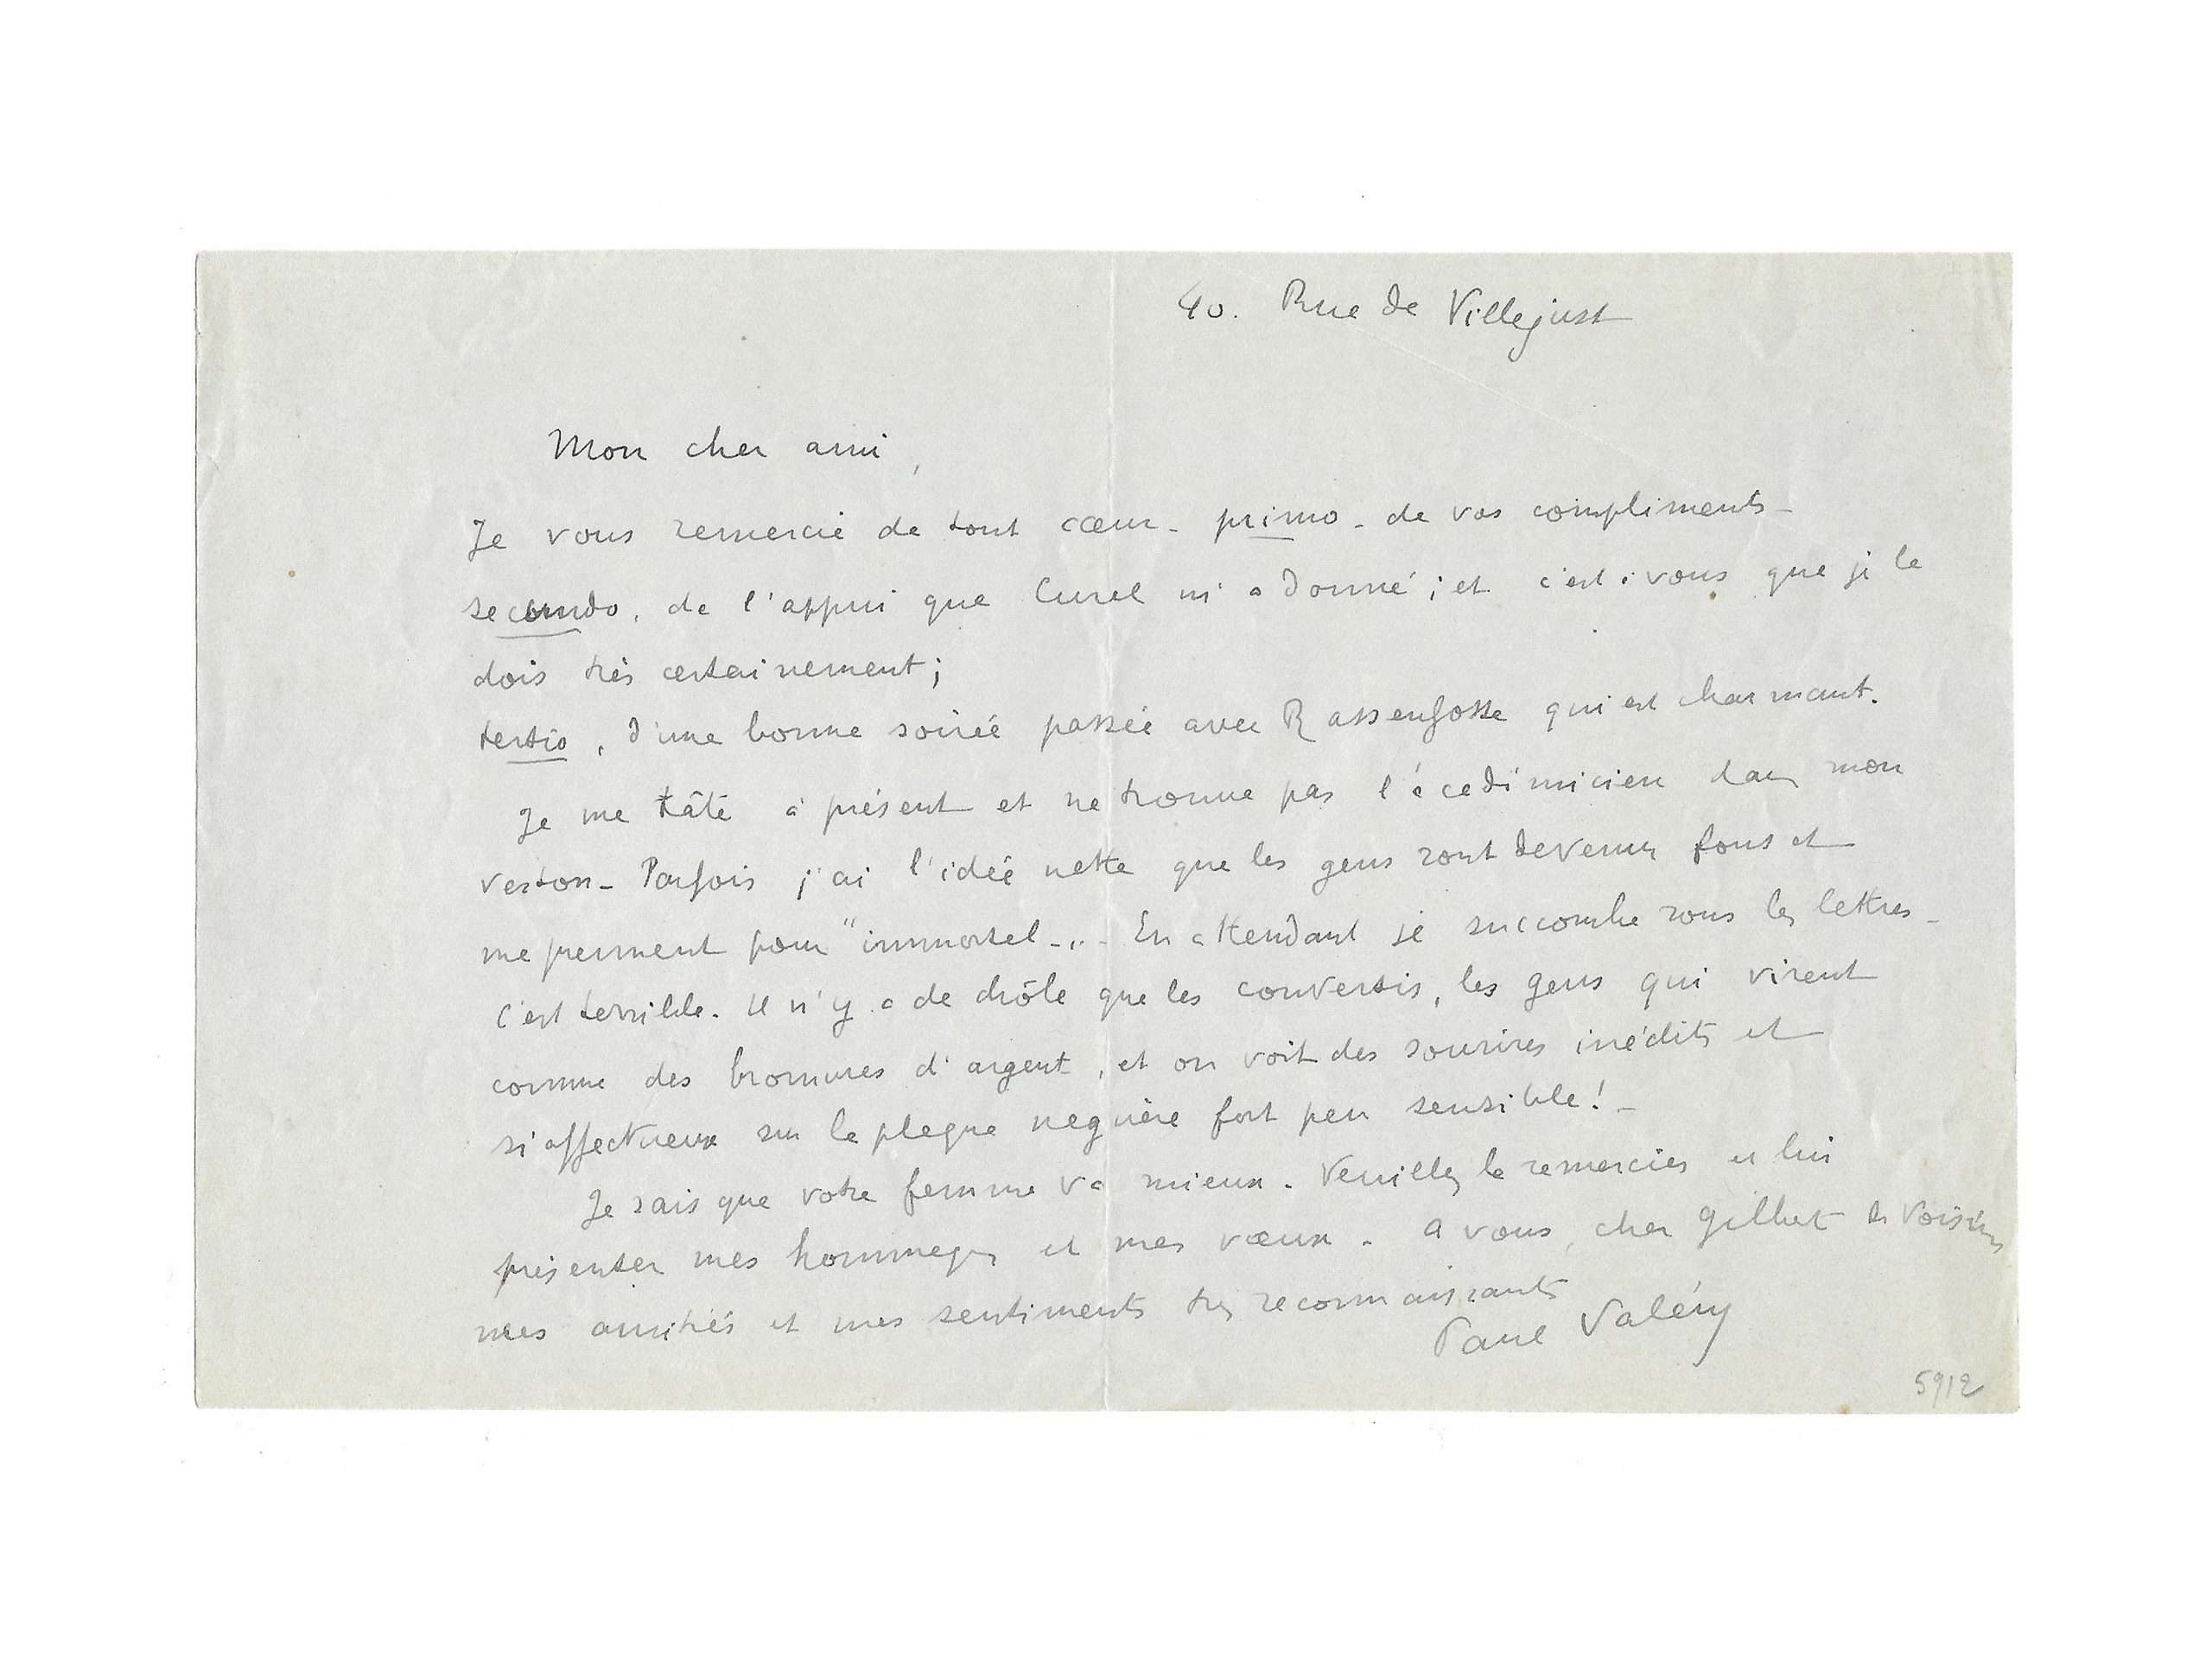 40. Rue de Villejust
Mon cher ami,
Je vous remercie de tout cœur - primo - de vos compliments -
secundo, de l'appui que Curel m'a donné ; et c'est à vous que je le
dois très certainement ;
tertio, d'une bonne soirée passée avec Rassenfosse qui est charmant.
Je me tâte à présent et ne trouve pas l'académicien dans mon
veston - Parfois j'ai l'idée nette que les gens sont devenus fous et
me prennent pour "immortel -". - En attendant je succombe sous les lettres -
C'est terrible. Il n'y a de drôle que les convertis, les gens qui virent
comme des bromures d'argent, et on voit des sourires inédits et
si affectueux sur la plaque naguère fort peu sensible ! -
Je sais que votre femme va mieux. Veuillez la remercier et lui
présenter mes hommages et mes vœux. A vous, cher Gilbert de Voisins
mes amitiés et mes sentiments très reconnaissants
Paul Valéry
5912